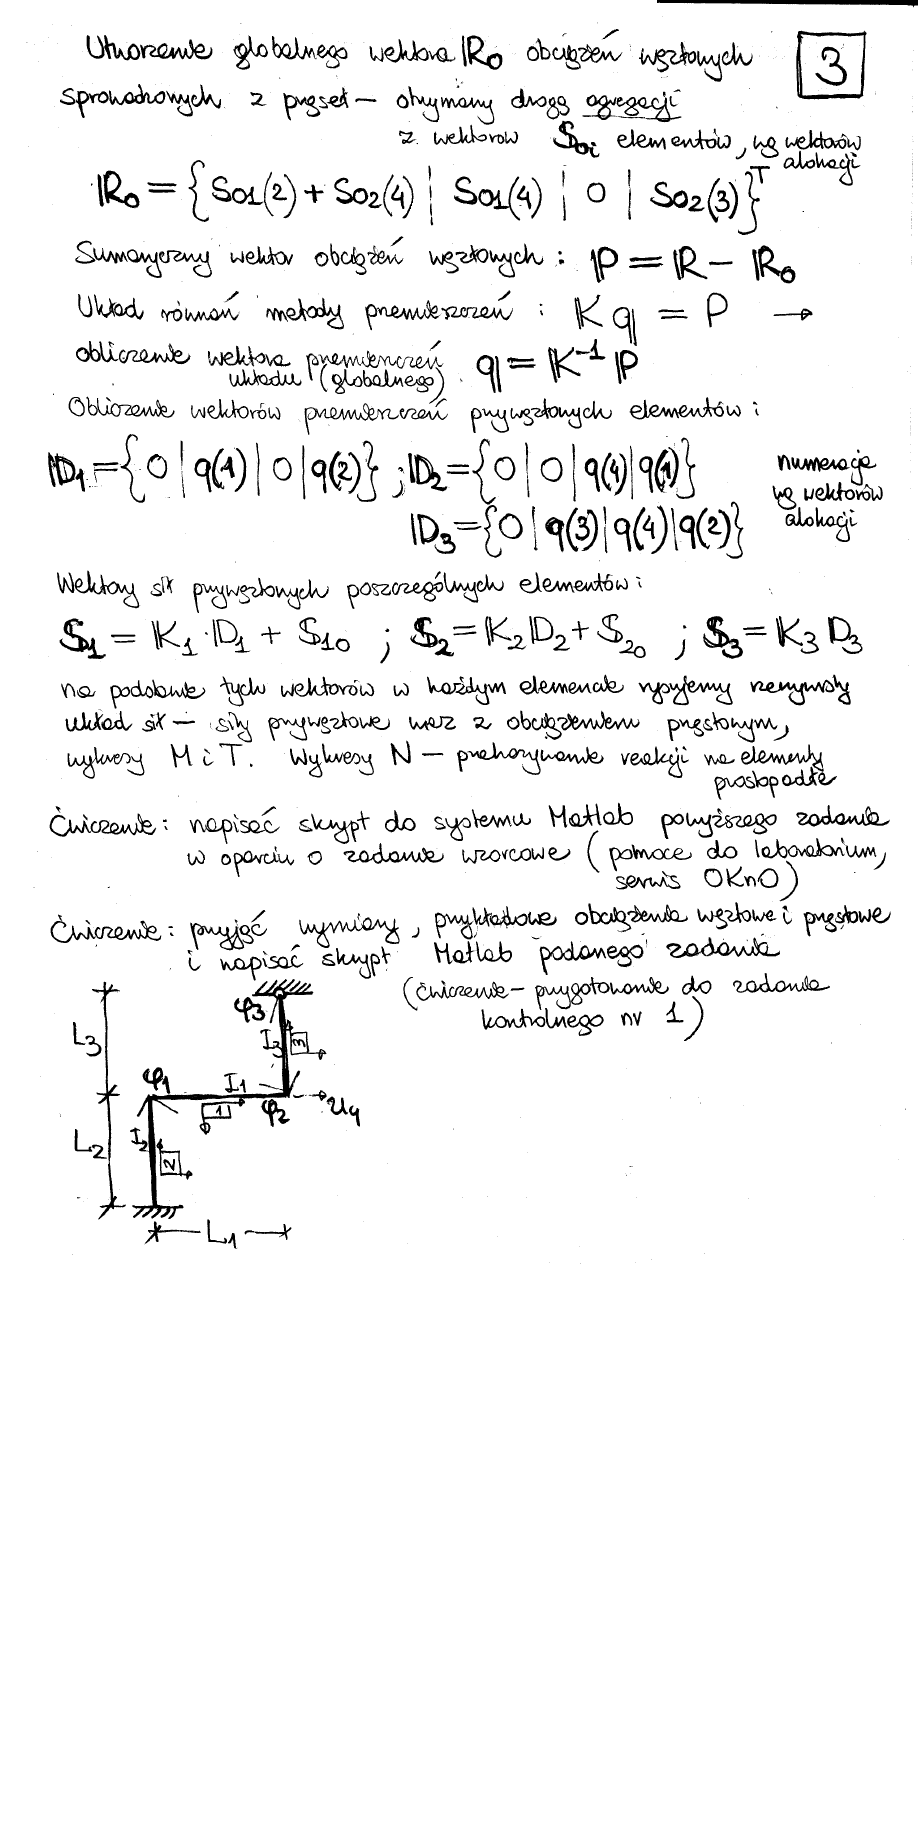 Utworzenie globalnego wektora R₀ obciążeń węzłowych
3
sprowadzonych z przęseł – otrzymany drogą agregacji
z wektorów S₀ᵢ elementów, wg wektorów
alokacji
R₀ = {S₀₁(2) + S₀₂(4) | S₀₁(4) | 0 | S₀₂(3)}ᵀ
Sumaryczny wektor obciążeń węzłowych : P = R – R₀
Układ równań metody przemieszczeń : K q = P →
obliczenie wektora przemieszczeń q = K⁻¹ P
układu (globalnego)
Obliczenie wektorów przemieszczeń przywęzłowych elementów :
D₁ = {0 | q(1) | 0 | q(2)} ; D₂ = {0 | 0 | q(4) | q(1)}
numeracja
wg wektorów
alokacji
D₃ = {0 | q(3) | q(4) | q(2)}
Wektory sił przywęzłowych poszczególnych elementów :
S₁ = K₁ · D₁ + S₁₀ ; S₂ = K₂ D₂ + S₂₀ ; S₃ = K₃ D₃
na podstawie tych wektorów w każdym elemencie rysujemy rzeczywisty
układ sił – siły przywęzłowe wraz z obciążeniem przęsłowym,
wykresy M i T. Wykresy N – przekazywanie reakcji na elementy
prostopadłe
Ćwiczenie : napisać skrypt do systemu Matlab powyższego zadania
w oparciu o zadanie wzorcowe (pomoce do laboratorium,
serwis OKnO)
Ćwiczenie : przyjąć wymiary, przykładowe obciążenia węzłowe i przęsłowe
i napisać skrypt Matlab podanego zadania
(ćwiczenie – przygotowanie do zadania
kontrolnego nr 1)
φ₃
L₃
I₃
3
φ₁
I₁
1
φ₂
u₄
L₂
I₂
2
L₁